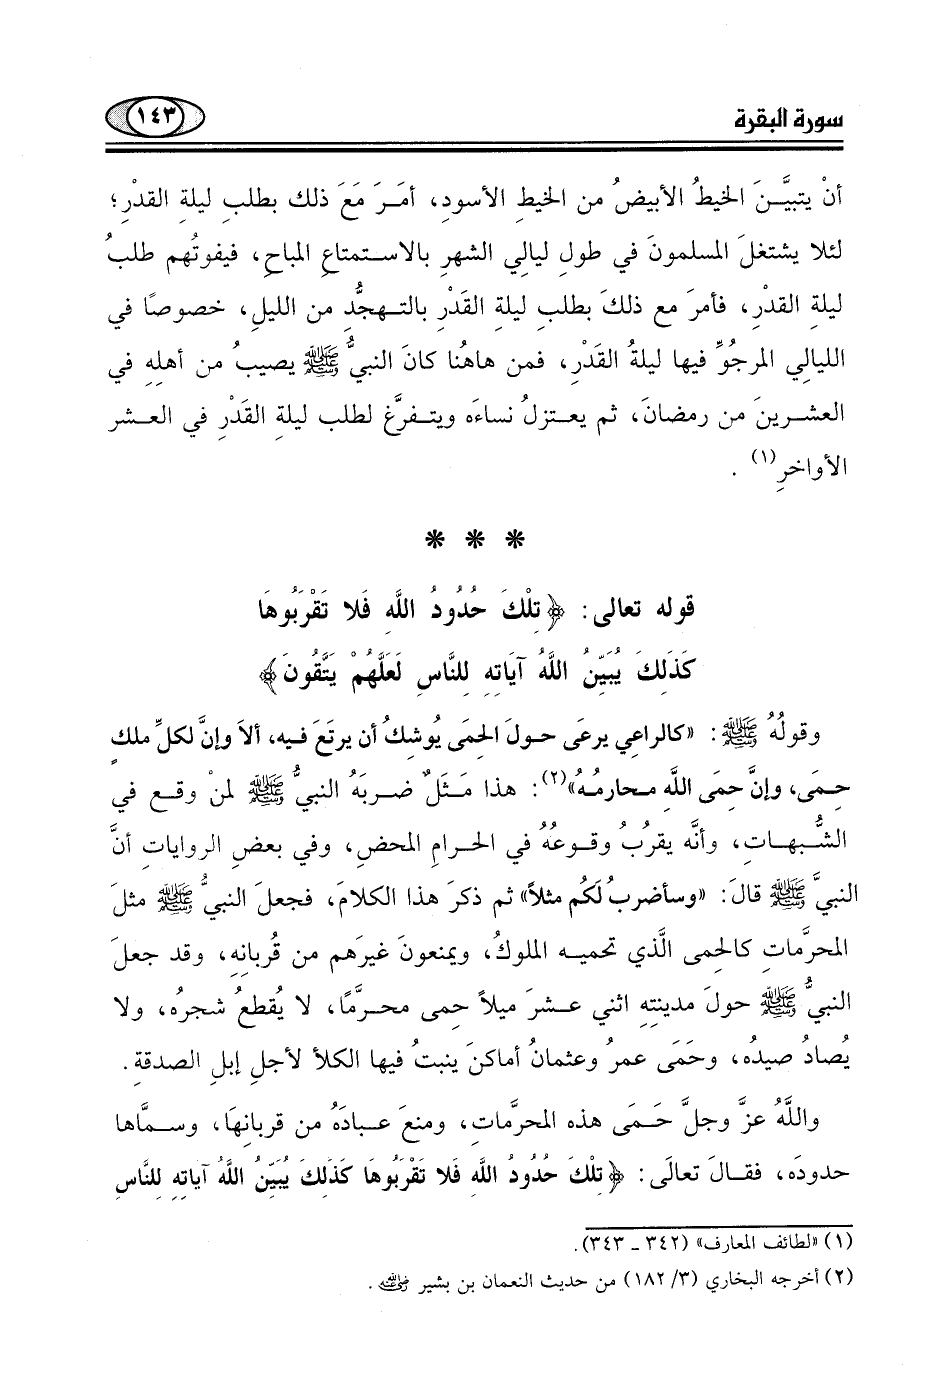 سورة البقرة ١٤٣
أنْ يتبيَّـنَ الخيطُ الأبيضُ من الخيطِ الأسودِ، أمَـرَ مَعَ ذلك بطلبِ ليلةِ القدْرِ؛
لئلا يشتغلَ المسلمونَ في طولِ ليالِي الشهرِ بالاستمتاعِ المباحِ، فيفوتُهم طلبُ
ليلةِ القدْرِ، فأمرَ مع ذلكَ بطلبِ ليلةِ القَدْرِ بالتـهجُّدِ من الليلِ، خصوصًا في
الليالِي المرجُوِّ فيها ليلةُ القَدْرِ، فمن هاهُنا كانَ النبيُّ ﷺ يصيبُ من أهلِهِ في
العشـرينَ من رمضانَ، ثم يعـتزلُ نساءَه ويتـفرَّغ لطلبِ ليلةِ القَدْرِ في العـشر
الأواخرِ(١) .
* * *
قوله تعالى: ﴿تلْكَ حُدُودُ اللَّهِ فَلا تَقْرَبُوهَا
كَذَلِكَ يُبَيِّنُ اللَّهُ آيَاتِهِ لِلنَّاسِ لَعَلَّهُمْ يَتَّقُونَ﴾
وقولُهُ ﷺ: «كالراعِي يرعَى حـولَ الحِمَى يُوشكُ أن يرتَعَ فيه، ألاَ وإنَّ لكلِّ ملكٍ
حِمَى، وإنَّ حِمَى اللَّهِ مـحارمُـهُ»(٢): هذا مَـثَلٌ ضـربَهُ النبيُّ ﷺ لمنْ وقع في
الشُّـبهـاتِ، وأنَّه يقربُ وقـوعُهُ في الحـرامِ المحضِ، وفي بعضِ الرواياتِ أنَّ
النبيَّ ﷺ قالَ: «وسأضربُ لكُم مثلاً» ثم ذكرَ هذا الكلامَ، فـجعلَ النبيُّ ﷺ مثلَ
المحرَّماتِ كالحِمى الَّذي تحميـه الملوكُ، ويمنعونَ غيرَهم من قُربانِهِ، وقد جعلَ
النبيُّ ﷺ حولَ مدينتِهِ اثني عـشرَ ميلاً حِمى محـرَّمًا، لا يُقطعُ شجرُه، ولا
يُصادُ صيدُه، وحَمَى عمرُ وعثمانُ أماكنَ ينبتُ فيها الكلأ لأجلِ إبلِ الصدقةِ .
واللَّهُ عزَّ وجلَّ حَـمَى هذه المحرَّماتِ، ومنعَ عـبادَهُ من قربانِهَا، وسـمَّاها
حدودَه، فقـالَ تعالَى: ﴿تِلْكَ حُدُودُ اللَّهِ فَلا تَقْرَبُوهَا كَذَلِكَ يُبَيِّنُ اللَّهُ آيَاتِهِ لِلنَّاسِ
(١) «لطائف المعارف» (٣٤٢ ـ ٣٤٣).
(٢) أخرجه البخاري (٣/ ١٨٢) من حديث النعمان بن بشير رضي الله عنه .